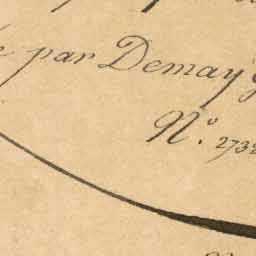 par Demay
N.º 2732